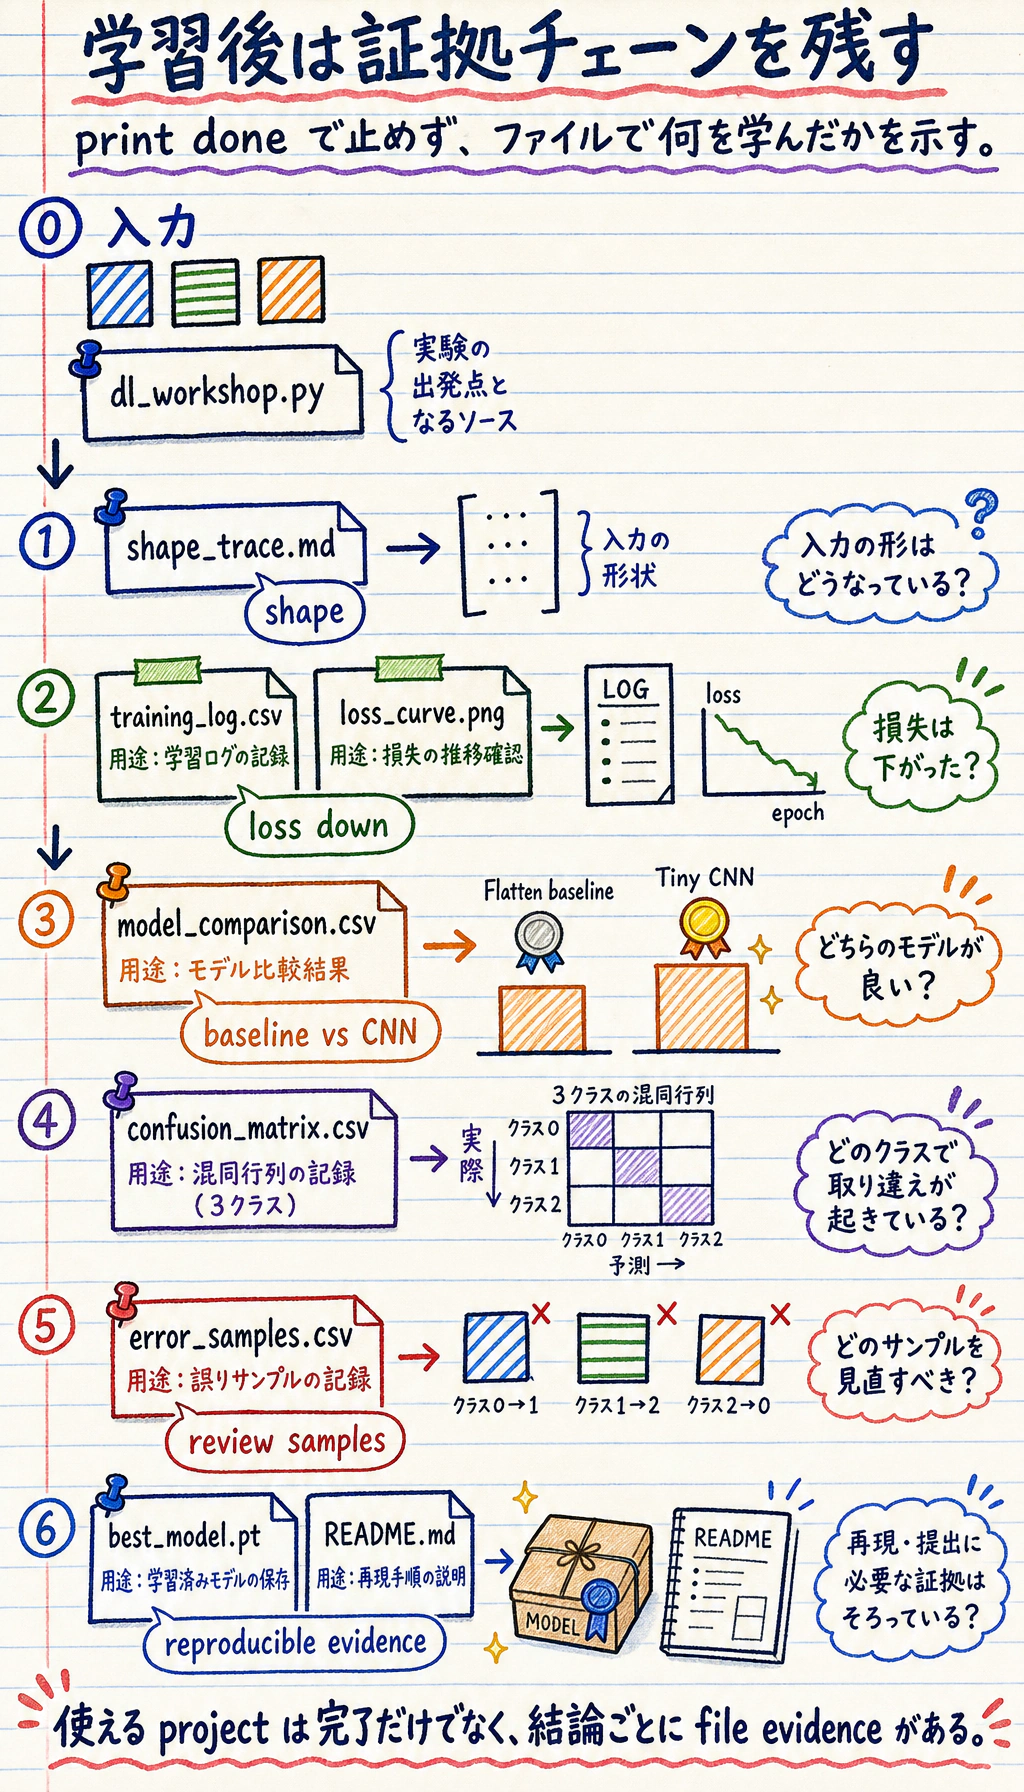 学習後は証拠チェーンを残す
print done で止めず、ファイルで何を学んだかを示す。
0 入力
dl_workshop.py
実験の
出発点と
なるソース
1
shape_trace.md
shape
入力の
形状
?
入力の形は
どうなっている?
2
training_log.csv
用途:学習ログの記録
loss_curve.png
用途:損失の推移確認
loss down
LOG
loss
epoch
損失は
下がった?
3
model_comparison.csv
用途:モデル比較結果
baseline vs CNN
Flatten baseline
Tiny CNN
どちらのモデルが
良い?
4
confusion_matrix.csv
用途:混同行列の記録
(3クラス)
3クラスの混同行列
実際
クラス0
クラス1
クラス2
クラス0 クラス1 クラス2
予測→
どのクラスで
取り違えが
起きている?
5
error_samples.csv
用途:誤りサンプルの記録
review samples
クラス0→1
クラス1→2
クラス2→0
どのサンプルを
見直すべき?
6
best_model.pt
用途:学習済みモデルの保存
README.md
用途:再現手順の説明
reproducible evidence
MODEL
README
再現・提出に
必要な証拠は
そろっている?
使える project は完了だけでなく、結論ごとに file evidence がある。